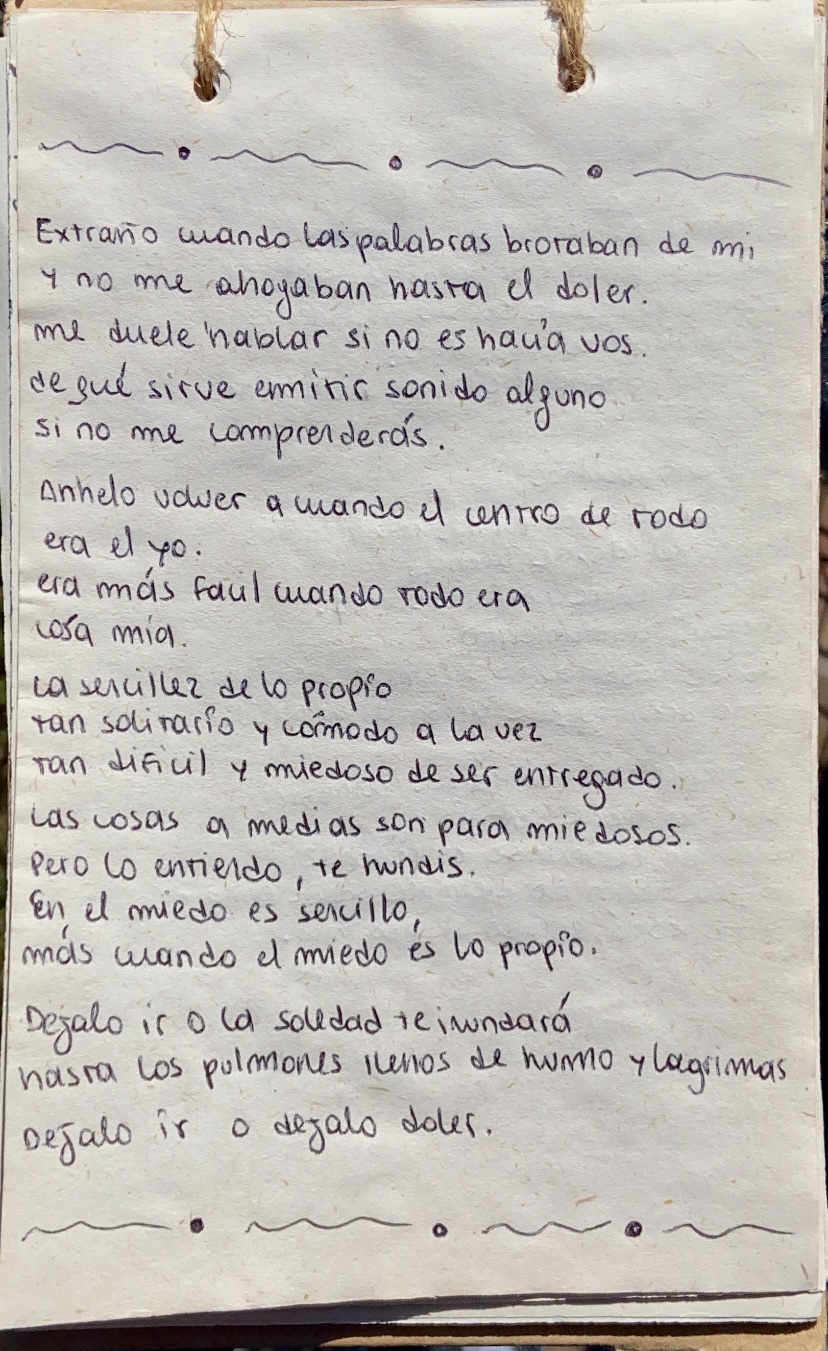 Extraño cuando las palabras brotaban de mi,
y no me ahogaban hasta el doler.
me duele hablar si no es hacia vos.
de qué sirve emitir sonido alguno
si no me comprenderás.
Anhelo volver a cuando el centro de todo
era el yo.
era más facil cuando todo era
cosa mía.
La sencillez de lo propio
tan solitario y cómodo a la vez
tan dificil y miedoso de ser entregado.
Las cosas a medias son para miedosos.
Pero lo entiendo, te hundis.
En el miedo es sencillo,
más cuando el miedo es lo propio.
Dejalo ir o la soledad te inundará
hasta los pulmones llenos de humo y lagrimas
Dejalo ir o dejalo doler.